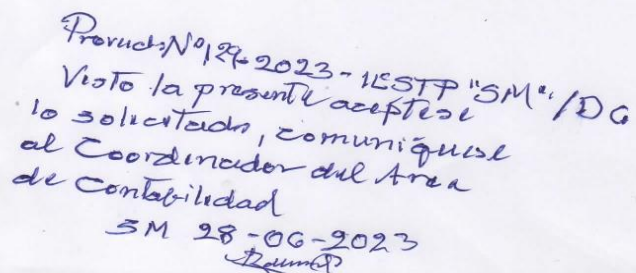 Proveido Nº 129-2023 - IESTP "SM" / DG
Visto la presente aceptese
lo solicitado, comuniquese
al Coordinador del Area
de Contabilidad
SM 28-06-2023